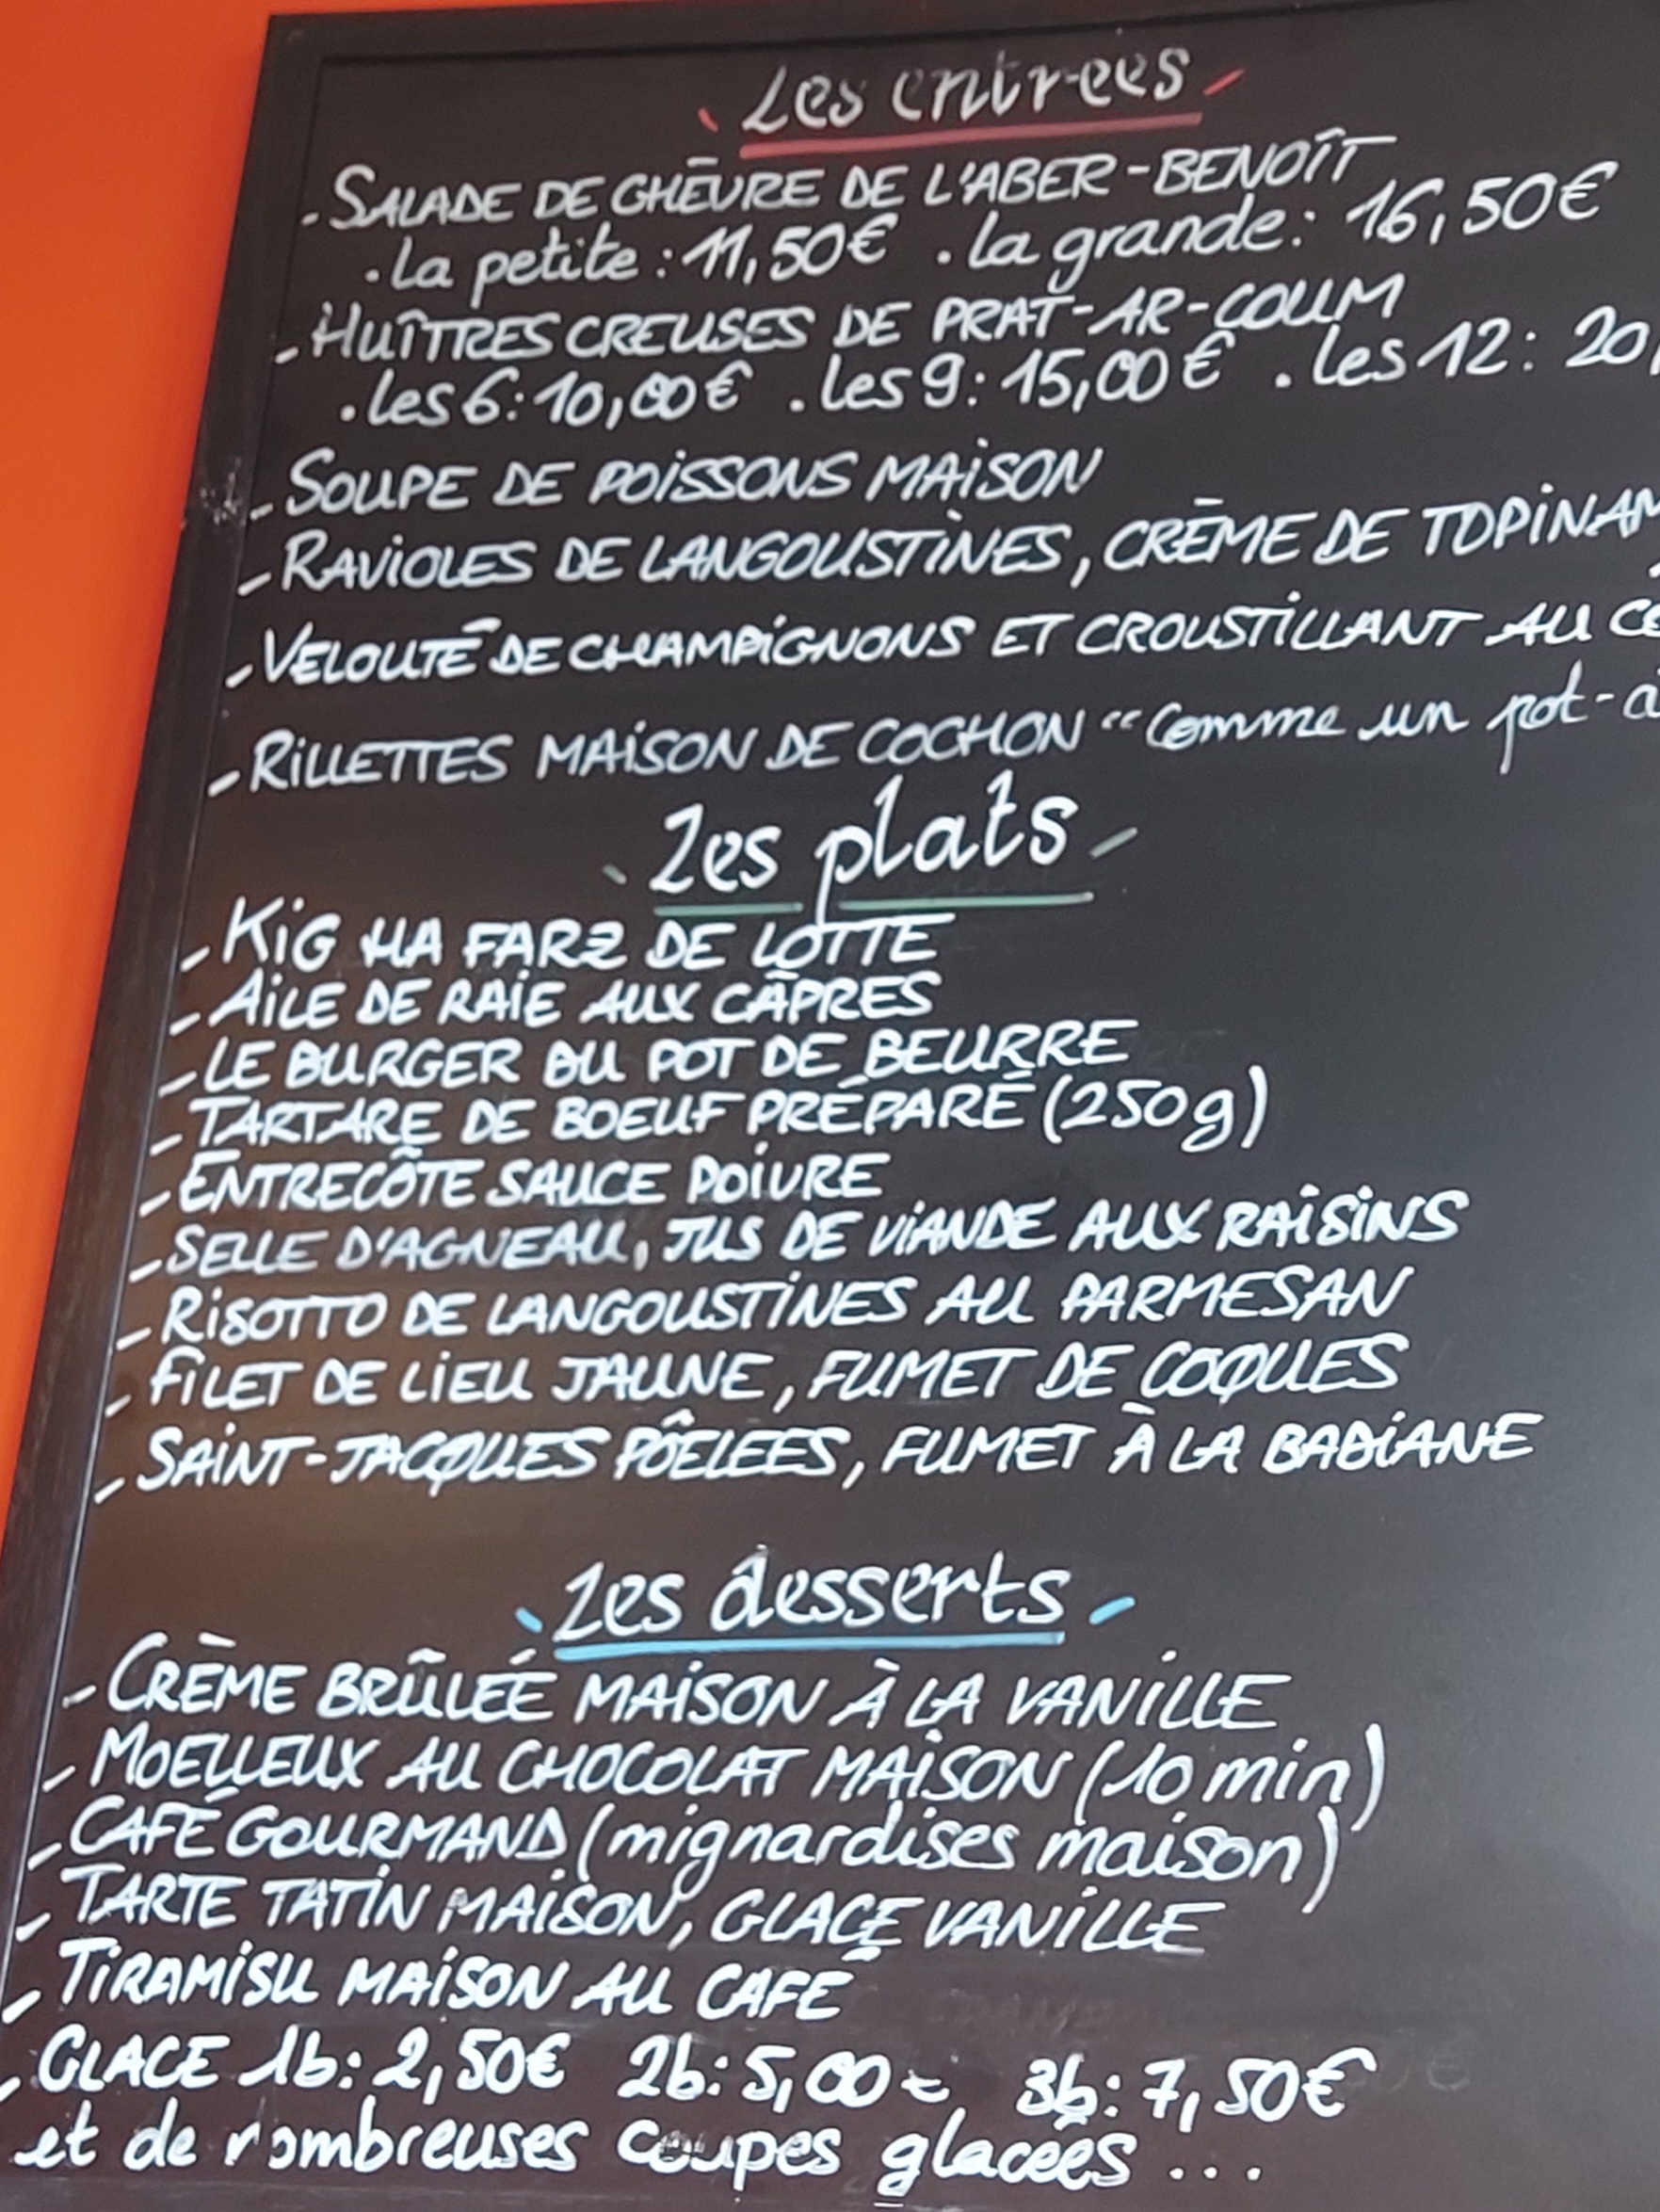 Les entrées
- SALADE DE CHÈVRE DE L'ABER-BENOÎT
. La petite : 11,50€ . la grande : 16,50€
- HUÎTRES CREUSES DE PRAT-AR-COUM
. les 6 : 10,00€ . les 9 : 15,00€ . les 12 : 20,
- SOUPE DE POISSONS MAISON
- RAVIOLES DE LANGOUSTINES, CRÈME DE TOPINAM
- VELOUTÉ DE CHAMPIGNONS ET CROUSTILLANT AU
- RILLETTES MAISON DE COCHON "Comme un pot-
Les plats
- KIG HA FARZ DE LOTTE
- AILE DE RAIE AUX CÂPRES
- LE BURGER DU POT DE BEURRE
- TARTARE DE BOEUF PRÉPARÉ (250g)
- ENTRECÔTE SAUCE POIVRE
- SELLE D'AGNEAU, JUS DE VIANDE AUX RAISINS
- RISOTTO DE LANGOUSTINES AU PARMESAN
- FILET DE LIEU JAUNE, FUMET DE COQUES
- SAINT-JACQUES PÔELEES, FUMET À LA BADIANE
Les desserts
- CRÈME BRÛLÉE MAISON À LA VANILLE
- MOELLEUX AU CHOCOLAT MAISON (10 min)
- CAFÉ GOURMAND (mignardises maison)
- TARTE TATIN MAISON, GLACE VANILLE
- TIRAMISU MAISON AU CAFÉ
- GLACE 1b : 2,50€ 2b : 5,00€ 3b : 7,50€
et de nombreuses coupes glacées ...